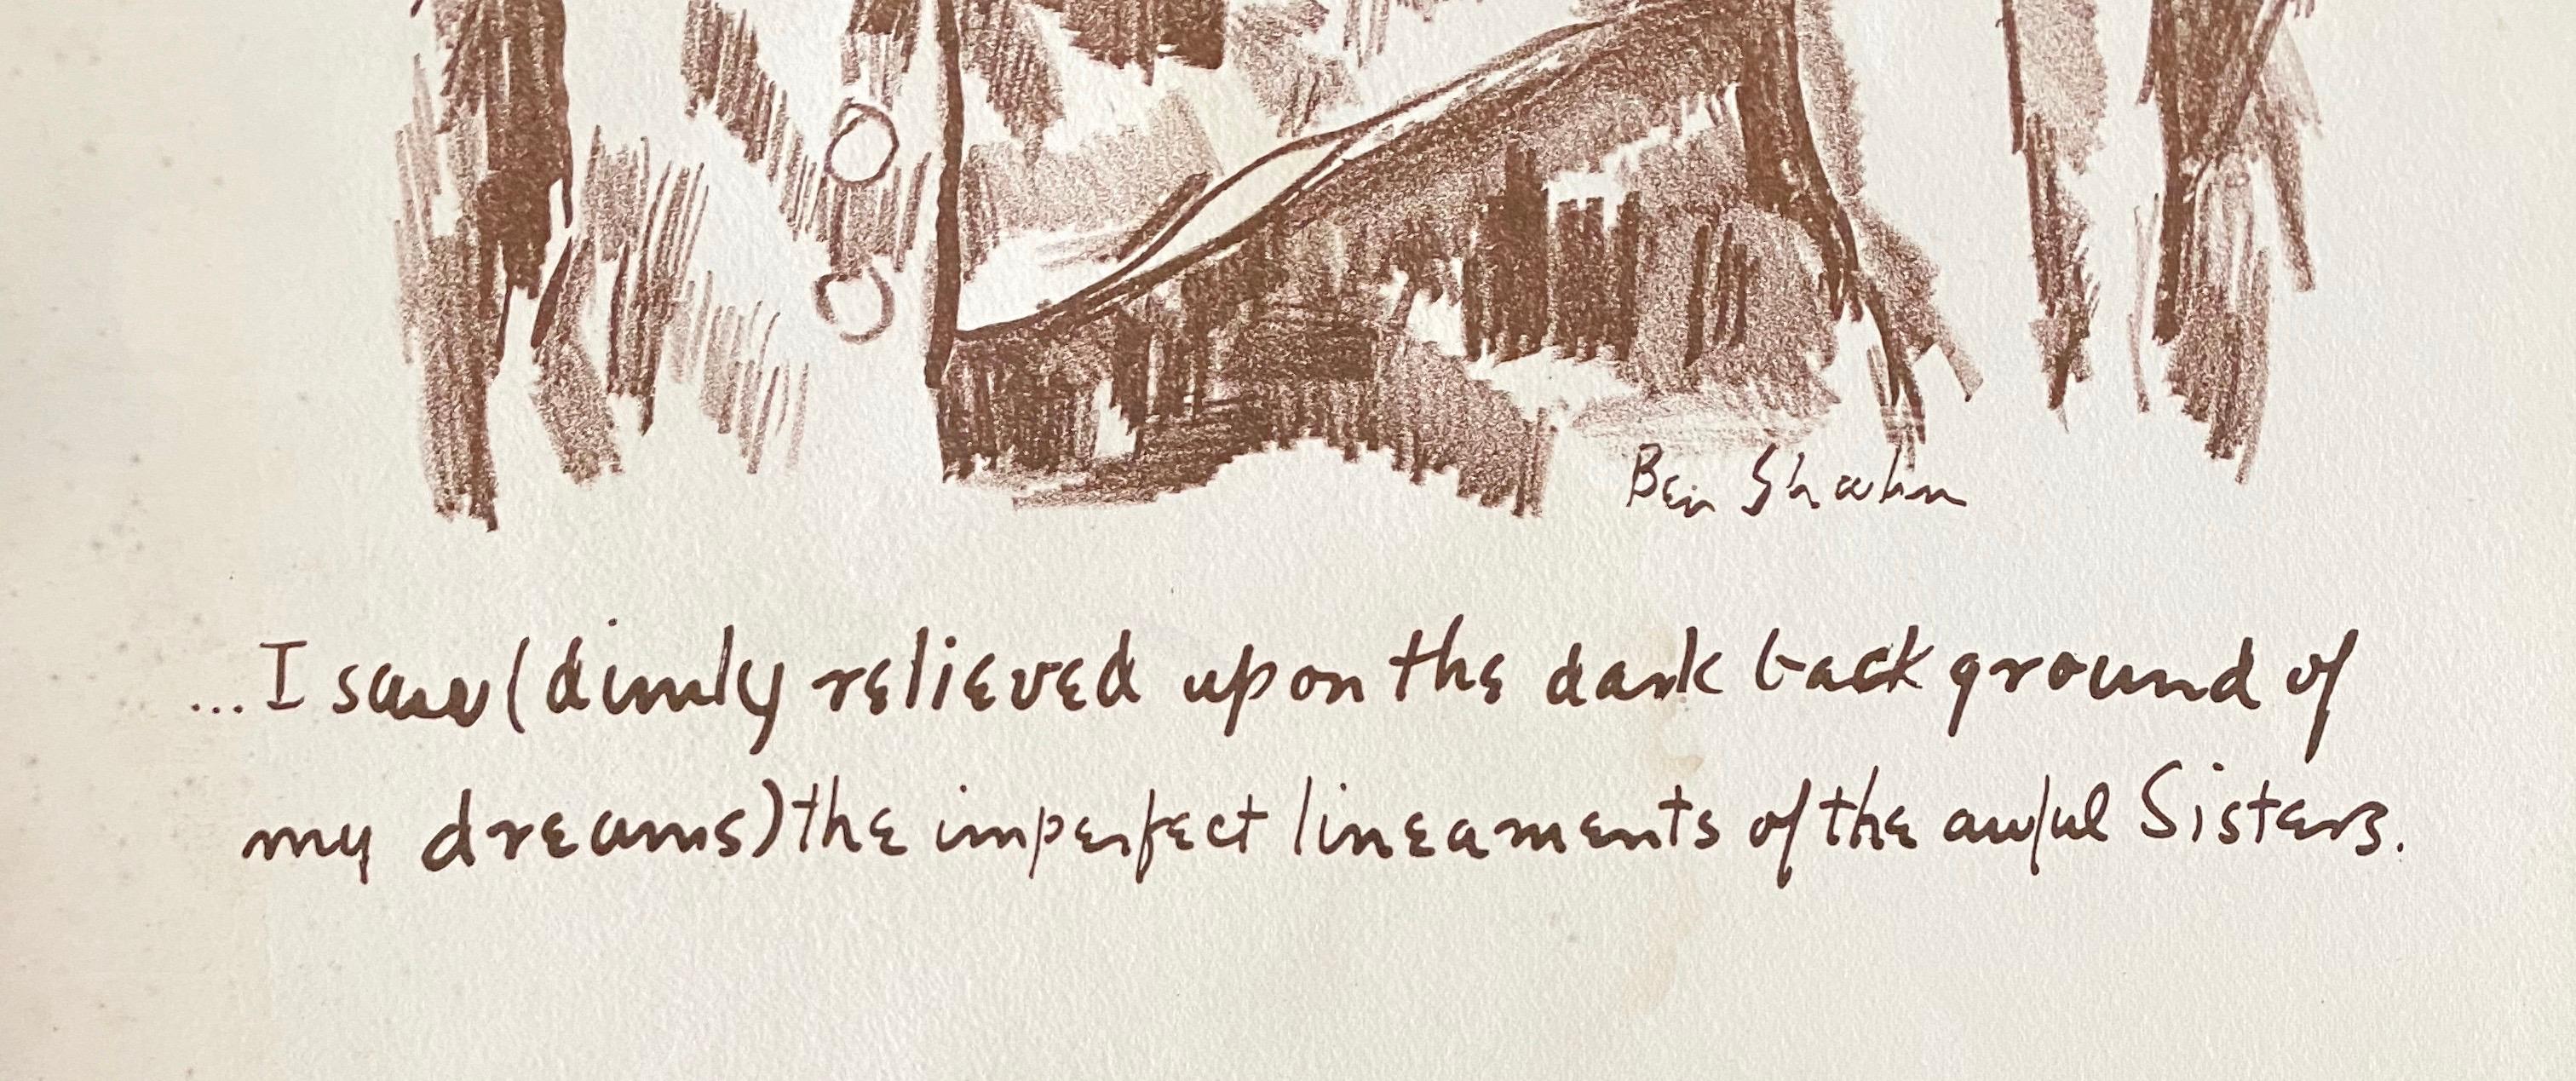 Ben Shahn
...I saw (dimly relieved upon the dark background of
my dreams) the imperfect lineaments of the awful Sisters.